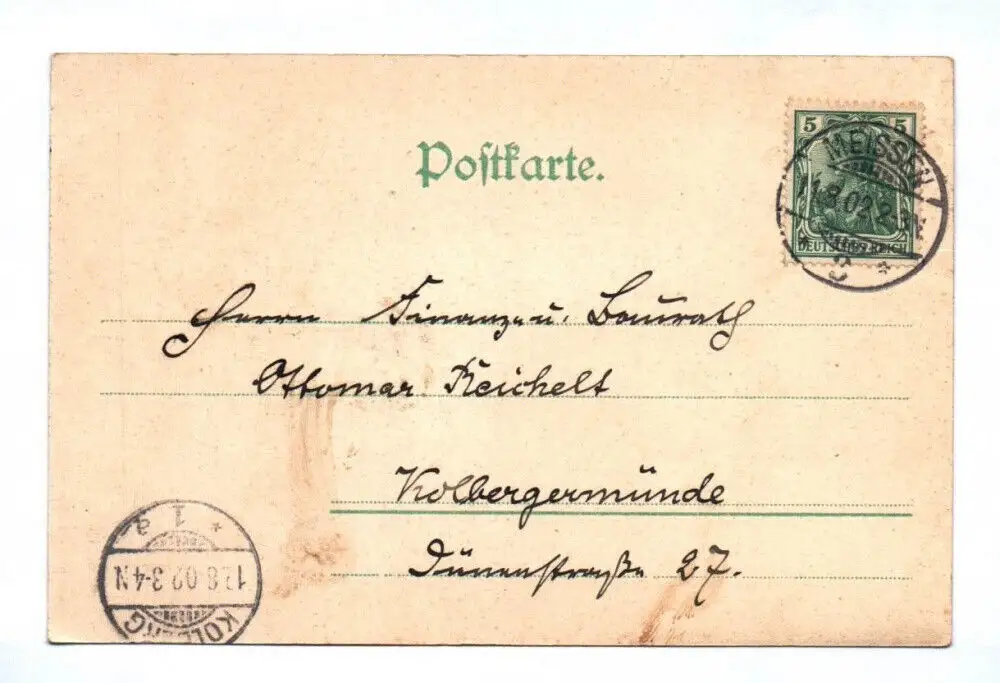 Postkarte.
5 5
MEISSEN
11.8.02.2-3N.
DEUTSCHES REICH
Herrn Finanz- u. Baurath
Ottomar Reichelt
Kolbergermünde
Dünenstraße 27.
1 a
12.8.02.3-4N
KOLBERG